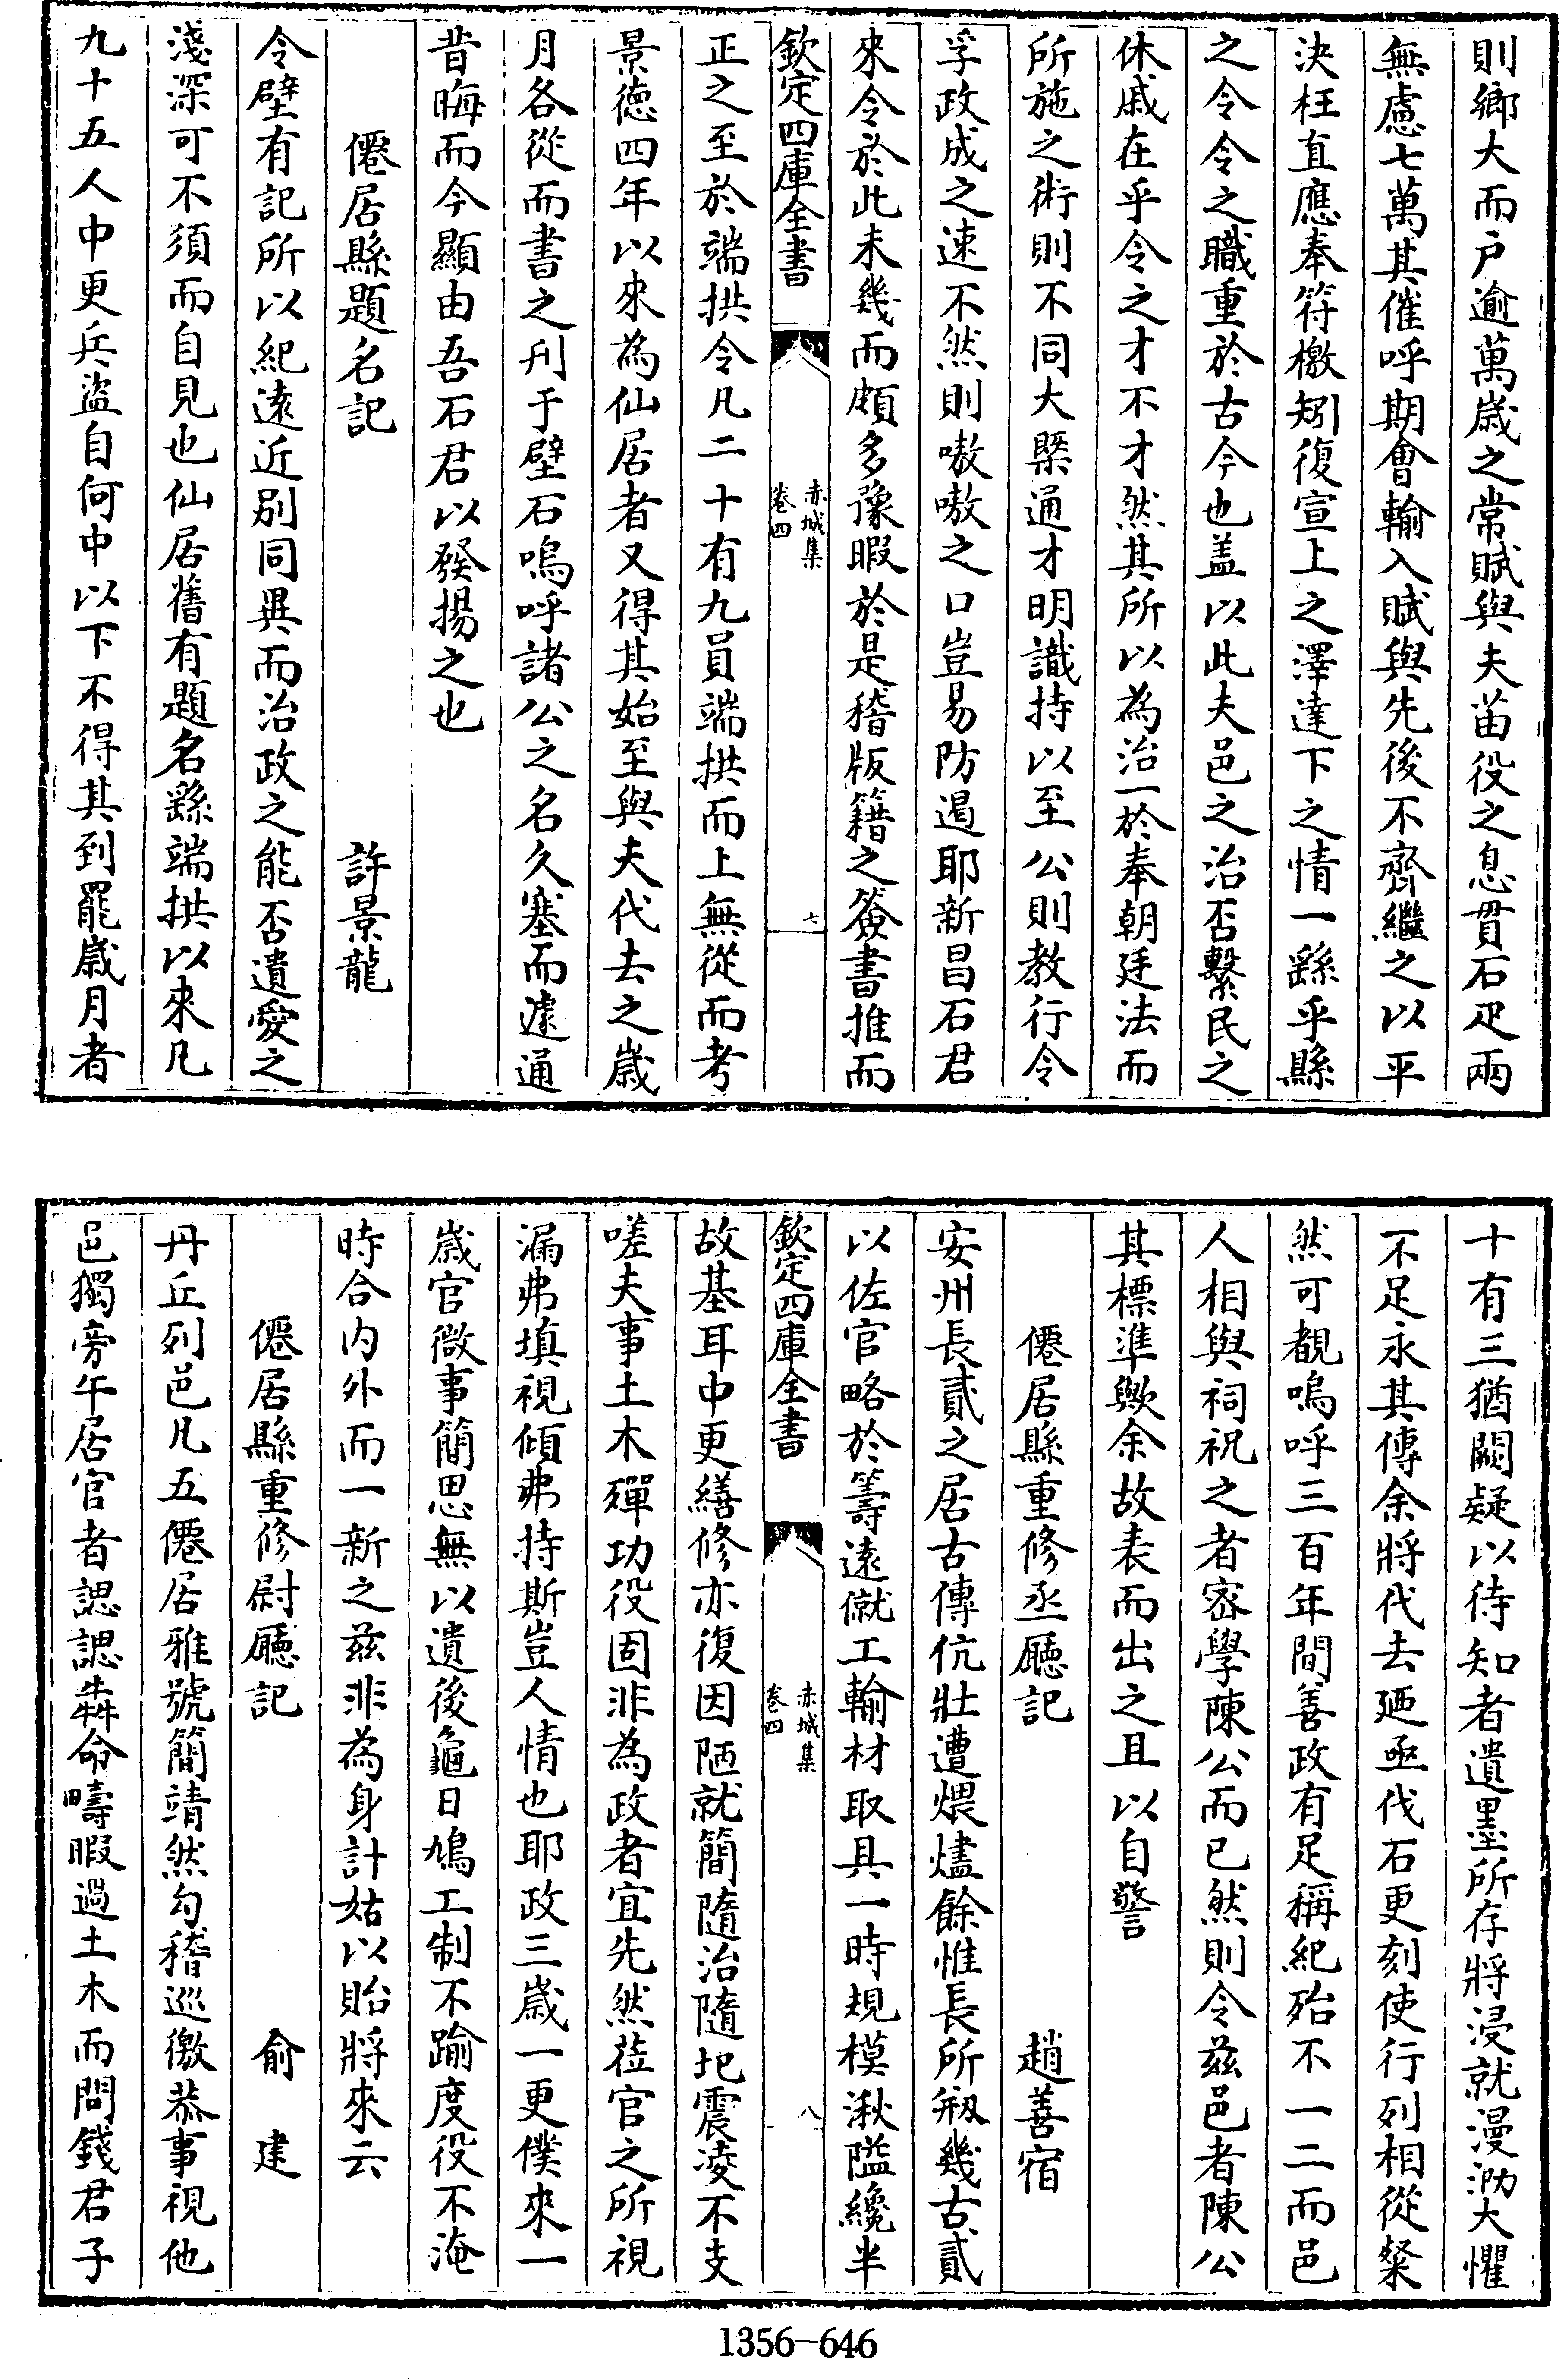 則鄉大而户逾萬歲之常賦與夫苗役之息貫石疋兩
無慮七萬其催呼期會輸入賦與先後不齊繼之以平
決枉直應奉符檄矧復宣上之澤達下之情一繇乎縣
之令令之職重於古今也盖以此夫邑之治否繫民之
休戚在乎令之才不才然其所以為治一於奉朝廷法而
所施之術則不同大槩通才明識持以至公則教行令
孚政成之速不然則嗷嗷之口豈易防遏耶新昌石君
來令於此未幾而頗多豫暇於是稽版籍之簽書推而
欽定四庫全書
赤城集
卷四
七
正之至於端拱令凡二十有九員端拱而上無從而考
景德四年以來為仙居者又得其始至與夫代去之歲
月各從而書之刋于壁石嗚呼諸公之名久塞而遽通
昔晦而今顯由吾石君以發揚之也
僊居縣題名記 許景龍
令壁有記所以紀遠近别同異而治政之能否遺愛之
淺深可不須而自見也仙居舊有題名繇端拱以來凡
九十五人中更兵盜自何中以下不得其到罷歲月者
十有三猶闕疑以待知者遺墨所存將浸就漫泐大懼
不足永其傳余將代去廼亟伐石更刻使行列相從粲
然可覩嗚呼三百年間善政有足稱紀殆不一二而邑
人相與祠祝之者宻學陳公而已然則令兹邑者陳公
其標準歟余故表而出之且以自警
僊居縣重修丞廳記 趙善宿
安州長貳之居古傳伉壯遭煨燼餘惟長所剏幾古貳
以佐官略於籌遠僦工輸材取具一時規模湫隘纔半
欽定四庫全書
赤城集
卷四
八
故基耳中更繕修亦復因陋就簡隨治隨圮震凌不支
嗟夫事土木殫功役固非為政者宜先然莅官之所視
漏弗填視傾弗持斯豈人情也耶政三歲一更僕來一
歲官微事簡思無以遺後龜日鳩工制不踰度役不淹
時合内外而一新之兹非為身計姑以貽將來云
僊居縣重修尉廳記 俞建
丹丘列邑凡五僊居雅號簡靖然勾稽巡徼恭事視他
邑獨旁午居官者諰諰犇命疇暇過土木而問錢君子
1356-646